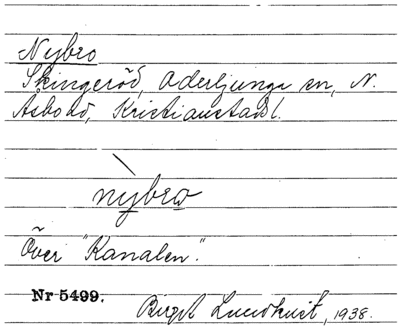 Nybro
Skingeröd, Oderljunga sn, N.
Åsbo hd, Kristianstad l.
nybro
Över "Kanalen".
Nr 5499.
Birgit Lundkvist, 1938.